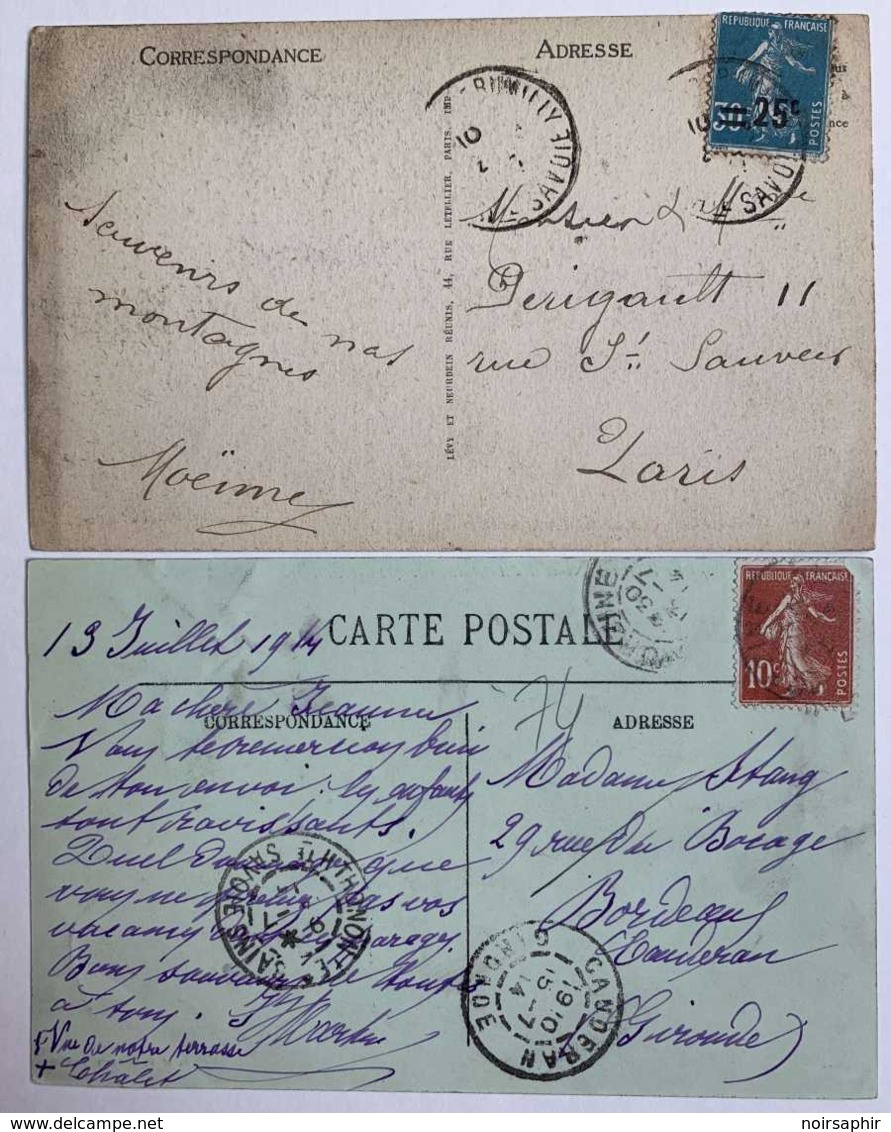 CORRESPONDANCE
ADRESSE
REPUBLIQUE FRANÇAISE
30 25c
POSTES
RUMILLY
SAVOIE
10
SAVOIE
LÉVY ET NEURDEIN RÉUNIS, 44, RUE LETELLIER, PARIS. IMP.
Monsieur & Mme
Perigault 11
rue St Sauveur
Paris
Souvenirs de nos
montagnes
13 Juillet 1914
CARTE POSTALE
REPUBLIQUE FRANÇAISE
10c
POSTES
74
CORRESPONDANCE
ADRESSE
Ma chère Jeanne
Vous remercions bien
de ton envoi : les enfants
sont ravissants.
Quel dommage que
vous ne preniez pas vos
vacances
Bons souvenirs de tous
à tous.
Vue de notre terrasse
+ Châlet
Madame Stang
29 rue du Bocage
Bordeaux
Cauderan
(Gironde)
THONON-LES-BAINS
HTE SAVOIE
CAUDERAN
GIRONDE
19 10
15 -7
14
noirsaphir
delcampe.net